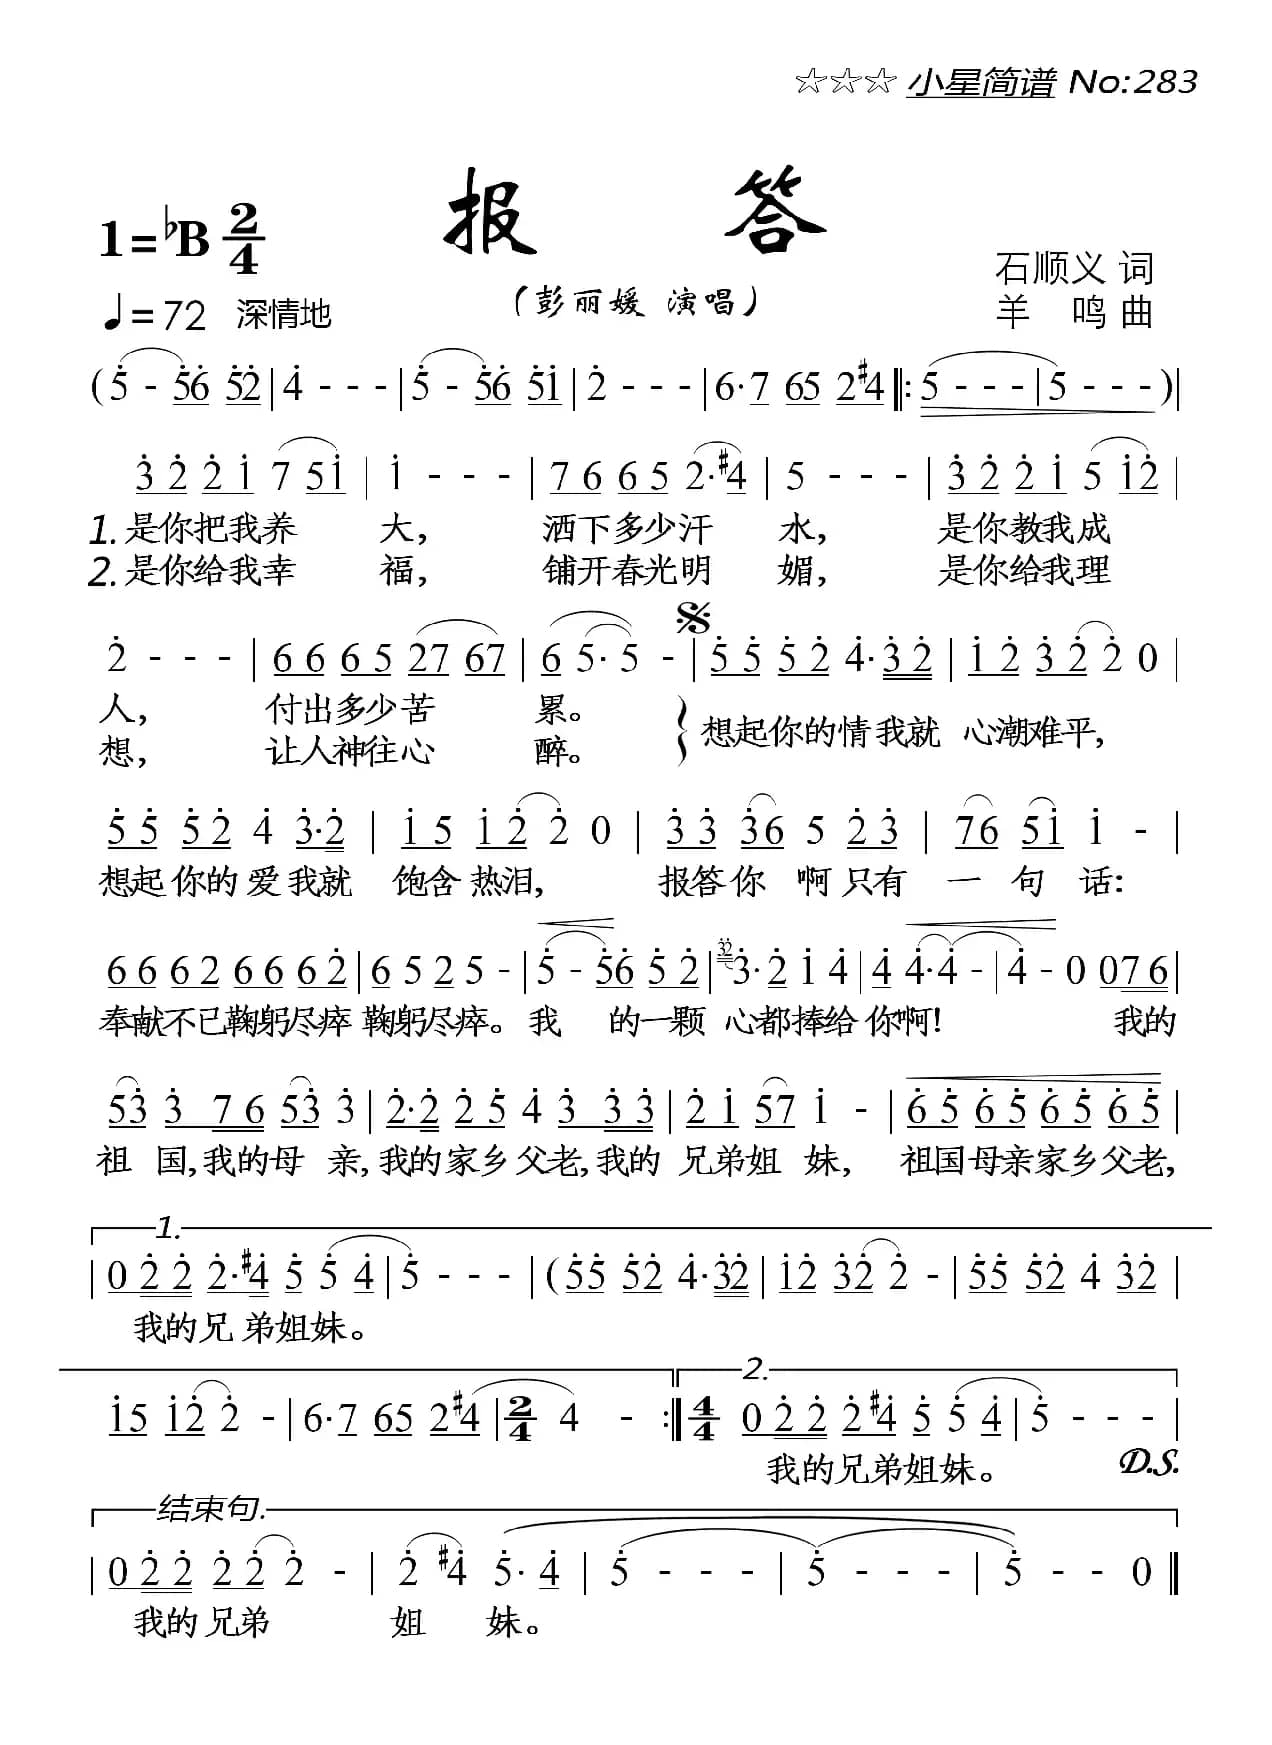 ☆☆☆ 小星简谱 No:283
报 答
1=♭B 2/4
♩=72 深情地
（彭丽媛 演唱）
石顺义 词
羊 鸣 曲
(5̇ - 5̇6̇ 5̇2̇ | 4̇ - - - | 5̇ - 5̇6̇ 5̇1̇ | 2̇ - - - | 6·7 65 2#4 ‖: 5 - - - | 5 - - - )|
3̇ 2̇ 2̇ 1̇ 7 51̇ | 1̇ - - - | 7 6 6 5 2·#4 | 5 - - - | 3̇ 2̇ 2̇ 1̇ 5 1̇2̇ |
1.是你把我养 大， 洒下多少汗 水， 是你教我成
2.是你给我幸 福， 铺开春光明 媚， 是你给我理
2̇ - - - | 6 6 6 5 27 67 | 6 5· 5 - | 5̇ 5̇ 5̇ 2̇ 4̇·3̇2̇ | 1̇2̇ 3̇2̇ 2̇ 0 |
人， 付出多少苦 累。 想起你的情我就 心潮难平，
想， 让人神往心 醉。
5̇ 5̇ 5̇2̇ 4̇ 3̇·2̇ | 1̇5 1̇2̇ 2̇ 0 | 3̇ 3̇ 3̇6 5 2̇3̇ | 76 51̇ 1̇ - |
想起你的爱我就 饱含热泪， 报答你 啊只有 一 句 话：
6 6 6 2 6 6 6 2̇ | 6 5 2 5 - | 5̇ - 5̇6̇ 5̇ 2̇ | 3̇2̇ 3̇· 2̇ 1̇ 4̇ | 4̇ 4̇·4̇ - | 4̇ - 0 076 |
奉献不已鞠躬尽瘁 鞠躬尽瘁。我 的一颗 心都捧给你啊！ 我的
53̇ 3̇ 7 6 53̇ 3̇ | 2̇·2̇ 2̇ 5̇ 4̇ 3̇ 3̇ 3̇ | 2̇ 1̇ 57 1̇ - | 6̇ 5̇ 6̇ 5̇ 6̇ 5̇ 6̇ 5̇ |
祖 国，我的母 亲，我的家乡父老，我的 兄弟姐 妹， 祖国母亲家乡父老，
1.
| 0 2̇ 2̇ 2̇·#4̇ 5̇ 5̇ 4̇ | 5̇ - - - | (5̇5̇ 5̇2̇ 4̇·3̇2̇ | 1̇2̇ 3̇2̇ 2̇ - | 5̇5̇ 5̇2̇ 4̇ 3̇2̇ |
我的兄 弟姐妹。
2.
1̇5 1̇2̇ 2̇ - | 6·7 65 2#4 | 2/4 4 - :‖ 4/4 0 2̇ 2̇ 2̇#4̇ 5̇ 5̇ 4̇ | 5̇ - - - |
我的兄弟姐妹。 D.S.
结束句.
| 0 2̇ 2̇ 2̇ 2̇ 2̇ - | 2̇ #4̇ 5̇· 4̇ | 5̇ - - - | 5̇ - - - | 5̇ - - 0 ‖
我的兄弟 姐 妹。